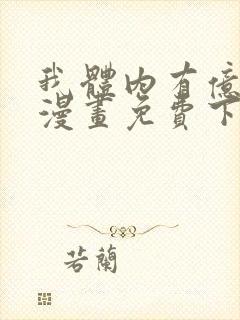 我體內有億
漫畫免費下
若蘭